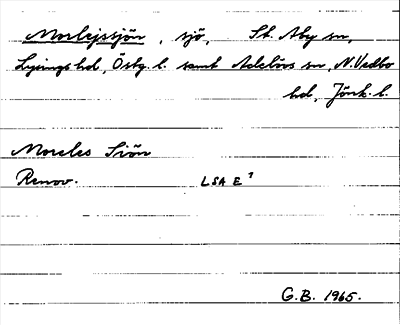 Morlejssjön, sjö, St. Åby sn,
Lysings hd, Östg. l. samt Adelövs sn, N. Vedbo
hd, Jönk. l.
Moreles Siön
Renov. LSA E 7
G.B. 1965.